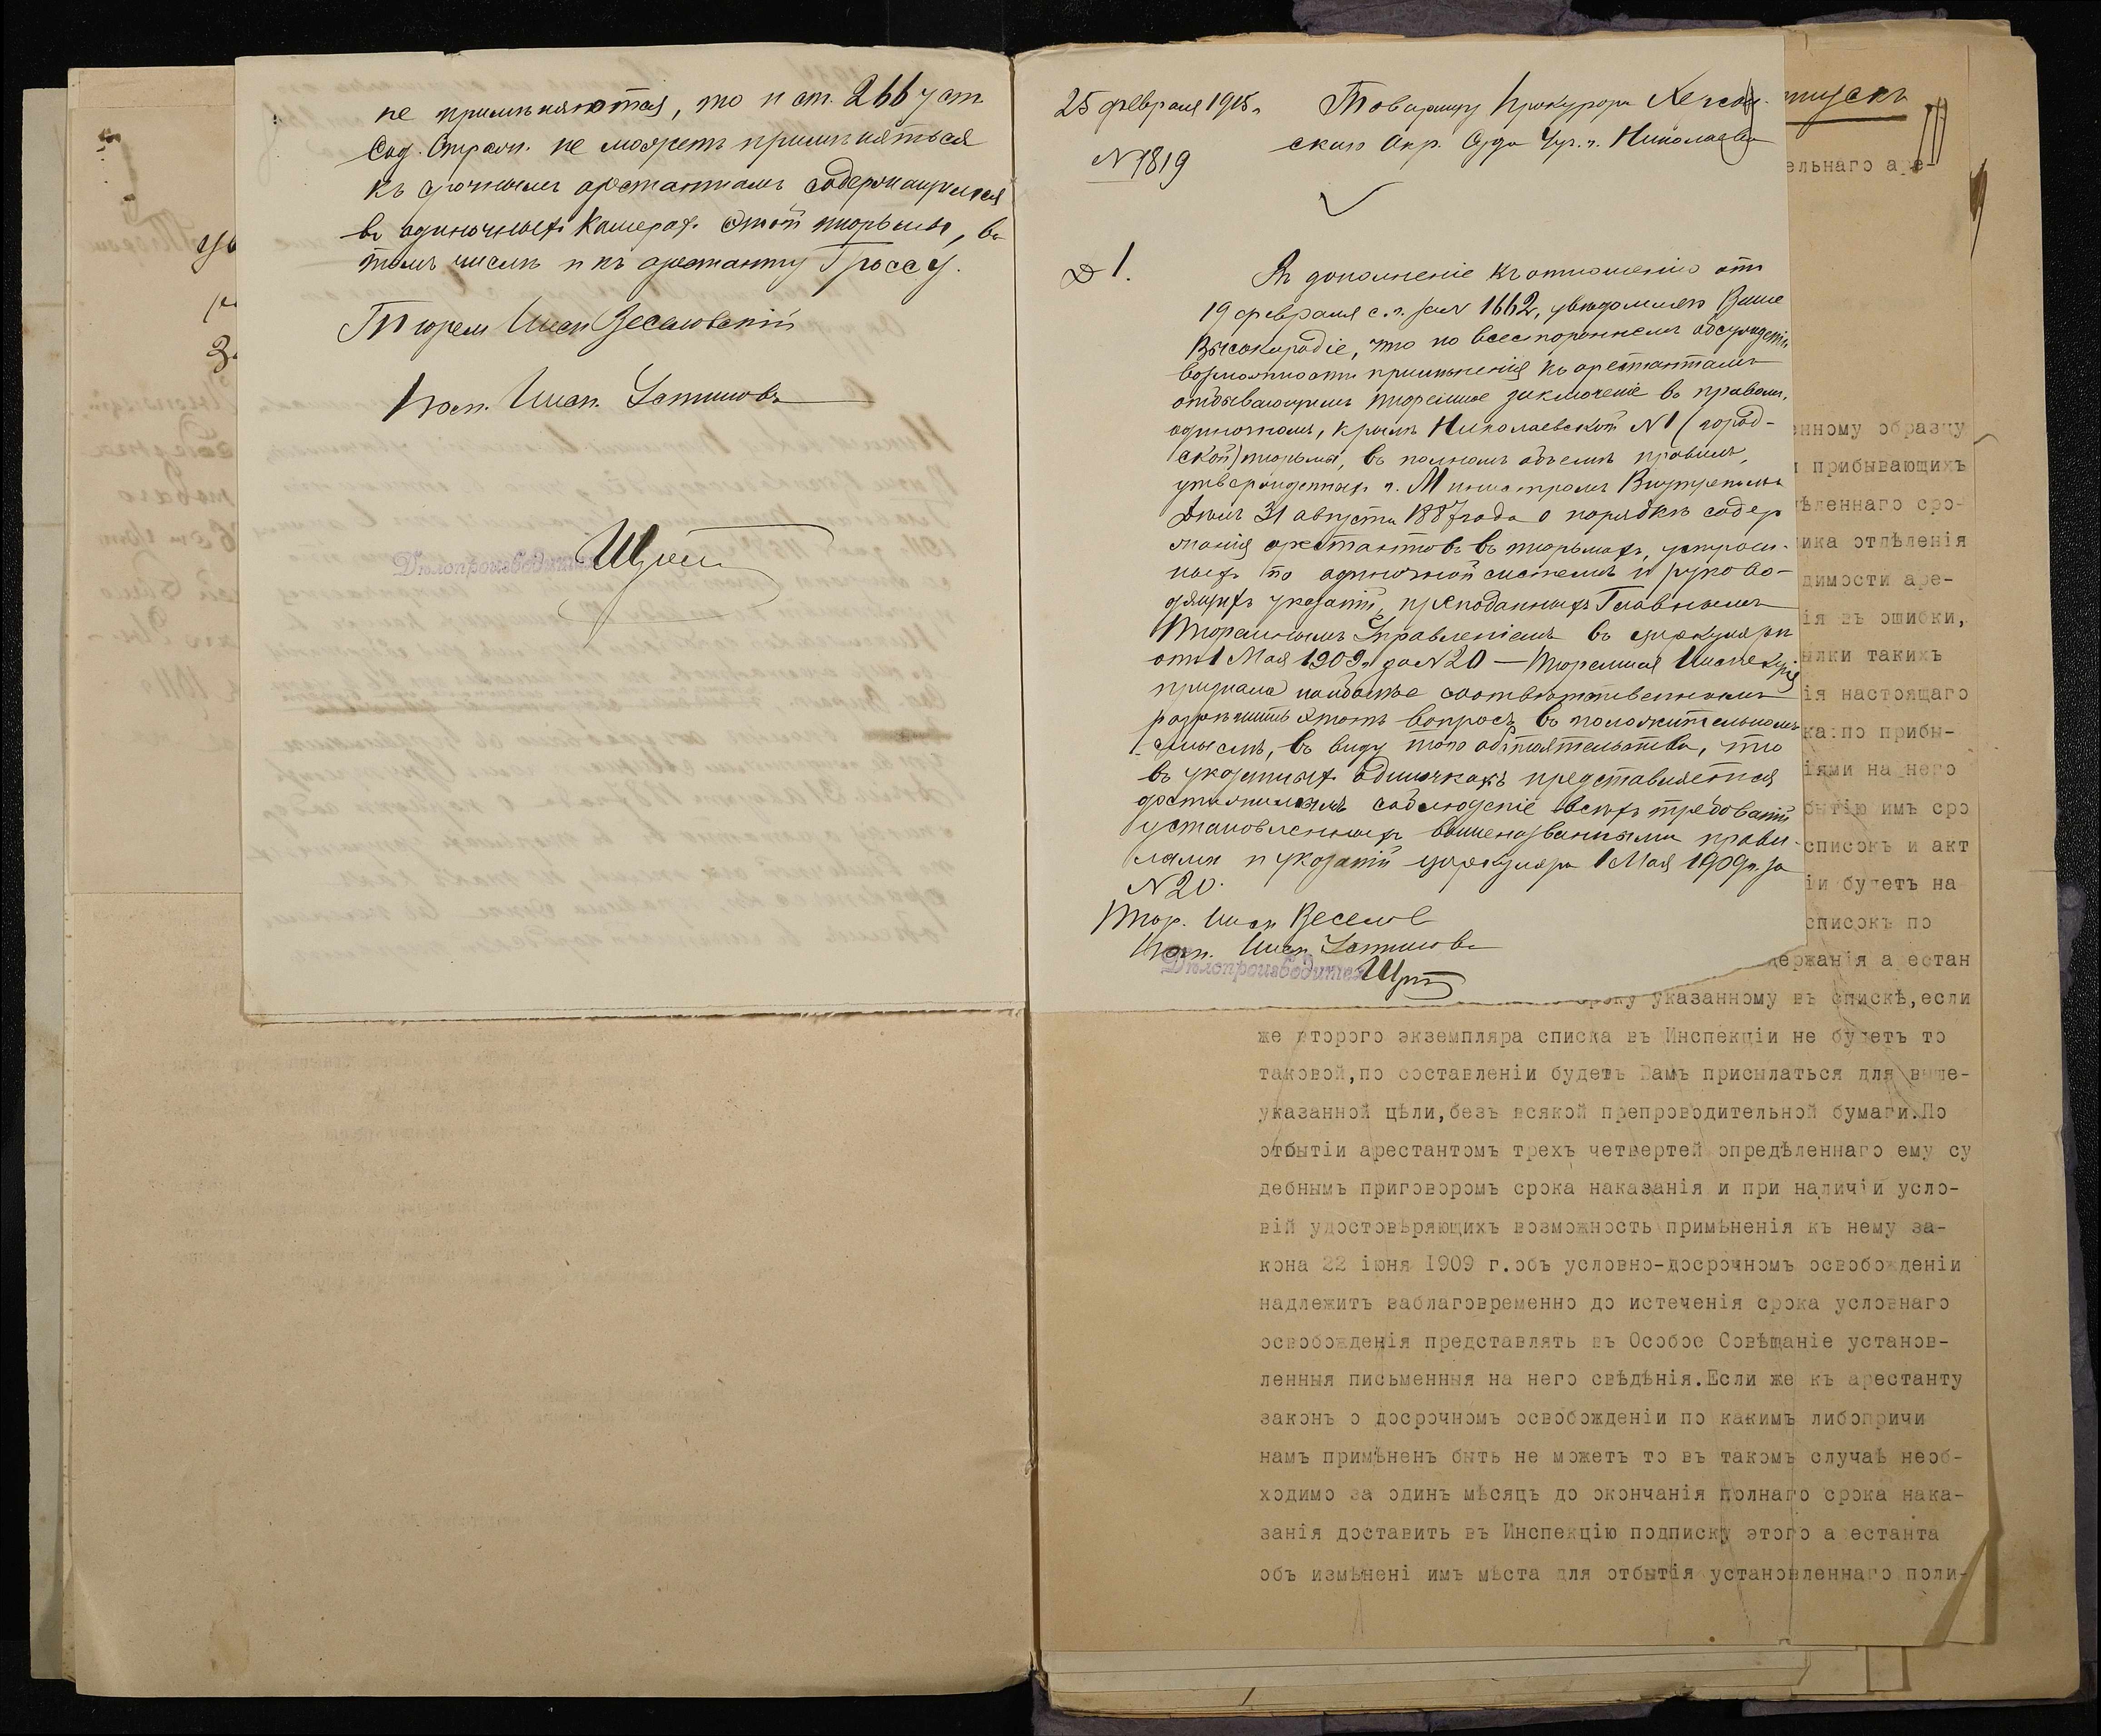 не примѣняются, то и ст. 266 уст.
Сод. Страж. не можетъ примѣняться
къ срочнымъ арестантамъ содержащимся
въ одиночныхъ камерахъ этой тюрьмы, въ
томъ числѣ и къ арестанту Гроссу.
Тюрем Инсп Веселовскій
Пом. Инсп.
Дѣлопроизводитель
25 февраля 1915 г.
№ 1819
Товарищу Прокурора Херсон-
скаго Окр. Суда Уч. г. Николаева
Д 1.
Въ дополненіе къ отношенію отъ
19 февраля с. г. за № 1662, увѣдомляю Ваше
Высокородіе, что по всестороннемъ обсужденіи
возможности примѣненія къ арестантамъ
отбывающимъ тюремное заключеніе въ
одиночномъ, крылѣ Николаевской № 1 (город-
ской) тюрьмы, въ полномъ объемѣ правилъ,
утвержденныхъ г. Министромъ Внутреннихъ
Дѣлъ 31 августа 1887 года о порядкѣ содер
жанія арестантовъ въ тюрьмахъ, устроен-
ныхъ по одиночной системѣ и руково-
дящихъ указаній, преподанныхъ Главнымъ
Тюремнымъ Управленіемъ въ циркулярѣ
отъ 1 Мая 1909 г. за № 20 — Тюремная Инспекція
признала наиболѣе соотвѣтственнымъ
разрѣшить этотъ вопросъ въ положительномъ
смыслѣ, въ виду того обстоятельства, что
въ указанныхъ одиночкахъ представляется
достижимымъ соблюденіе всѣхъ требованій
установленныхъ вышеназванными прави-
лами и указаній циркуляра 1 Мая 1909 г. за
№ 20.
Тюр. Инсп Веселов
Пом. Инсп
Дѣлопроизводитель
тпускъ
ельнаго аре-
нному образцу
прибывающихъ
ѣленнаго сро-
ика отдѣленія
димости аре-
ія въ ошибки,
ылки такихъ
ія настоящаго
ка:по прибы-
іями на него
бытію имъ сро
списокъ и акт
іи будетъ на
списокъ по
держанія арестан
сроку указанному въ спискѣ,если
же второго экземпляра списка въ Инспекціи не будетъ то
таковой,по составленіи будетъ Вамъ присылаться для выше-
указанной цѣли,безъ всякой препроводительной бумаги.По
отбытіи арестантомъ трехъ четвертей опредѣленнаго ему су
дебнымъ приговоромъ срока наказанія и при наличіи усло-
вій удостовѣряющихъ возможность примѣненія къ нему за-
кона 22 іюня 1909 г.объ условно-досрочномъ освобожденіи
надлежитъ заблаговременно до истеченія срока условнаго
освобожденія представлять въ Особое Совѣщаніе установ-
ленныя письменныя на него свѣдѣнія.Если же къ арестанту
законъ о досрочномъ освобожденіи по какимъ либопричи
намъ примѣненъ быть не можетъ то въ такомъ случаѣ необ-
ходимо за одинъ мѣсяцъ до окончанія полнаго срока нака-
занія доставить въ Инспекцію подписку этого арестанта
объ измѣнені имъ мѣста для отбытія установленнаго поли-